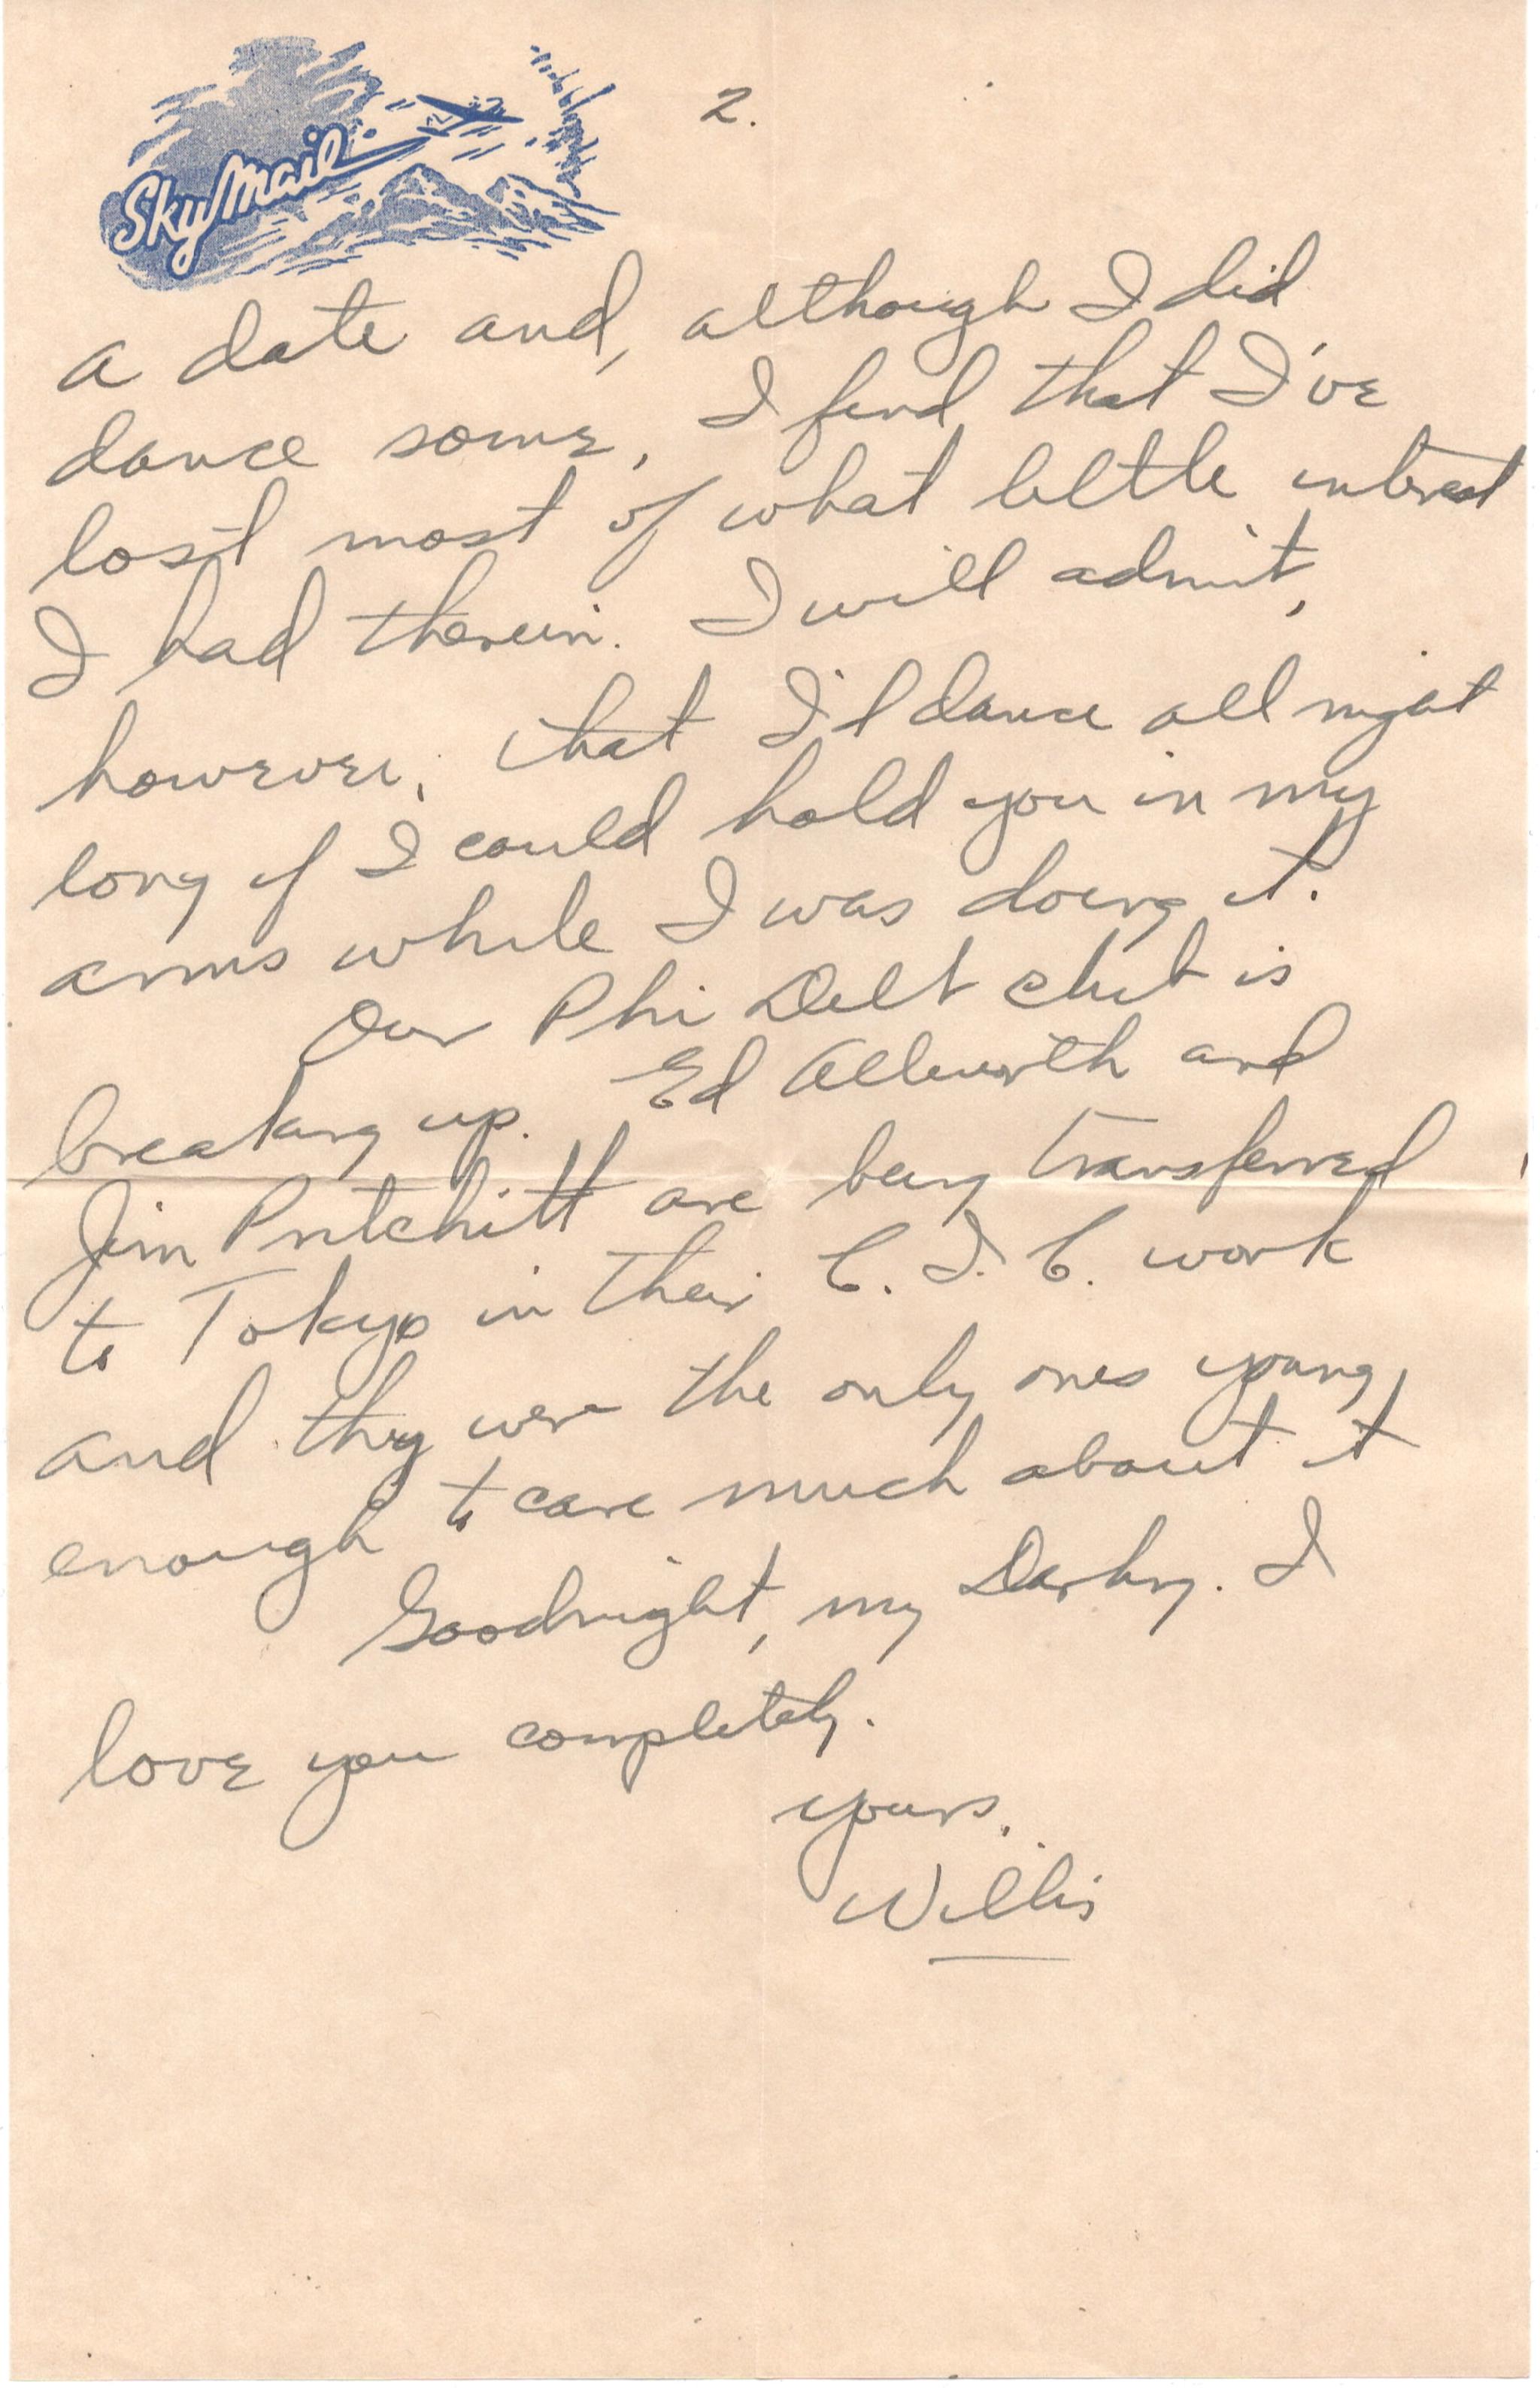 Sky Mail
2.
a date and, although I did
dance some, I find that I've
lost most of what little interest
I had therein. I will admit,
however, that I'd dance all night
long if I could hold you in my
arms while I was doing it.
Our Phi Delt club is
breaking up. Ed Allworth and
Jim Pritchitt are being transferred
to Tokyo in their C. I. C. work
and they were the only ones young
enough to care much about it
Goodnight, my Darling. I
love you completely.
yours,
Willis